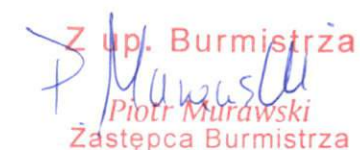 Z up. Burmistrza
P Murawski
Piotr Murawski
Zastępca Burmistrza